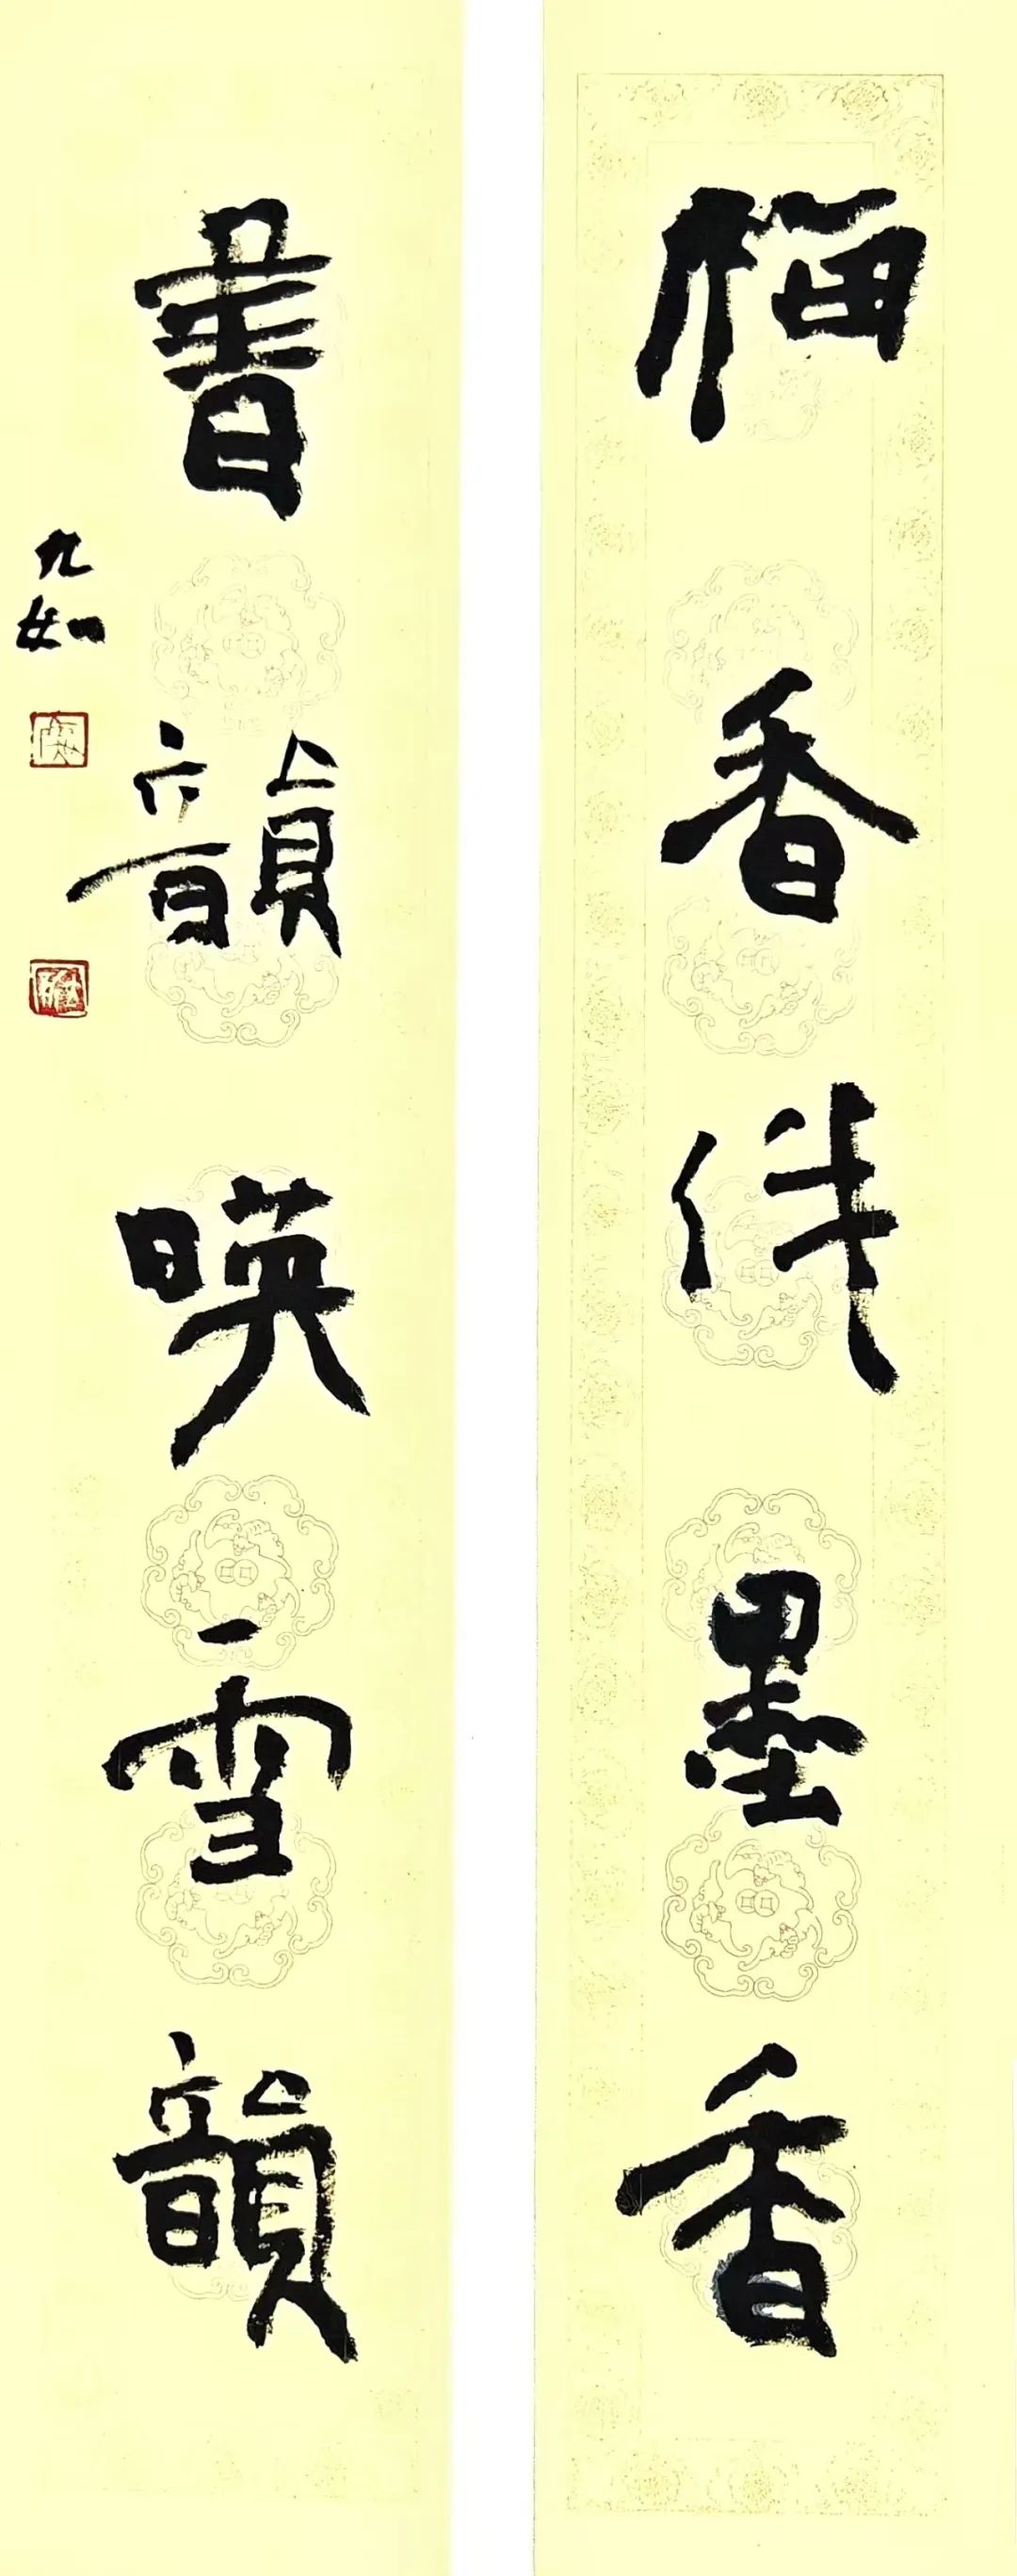 梅香伴墨香
書韻暎雪韻
九如